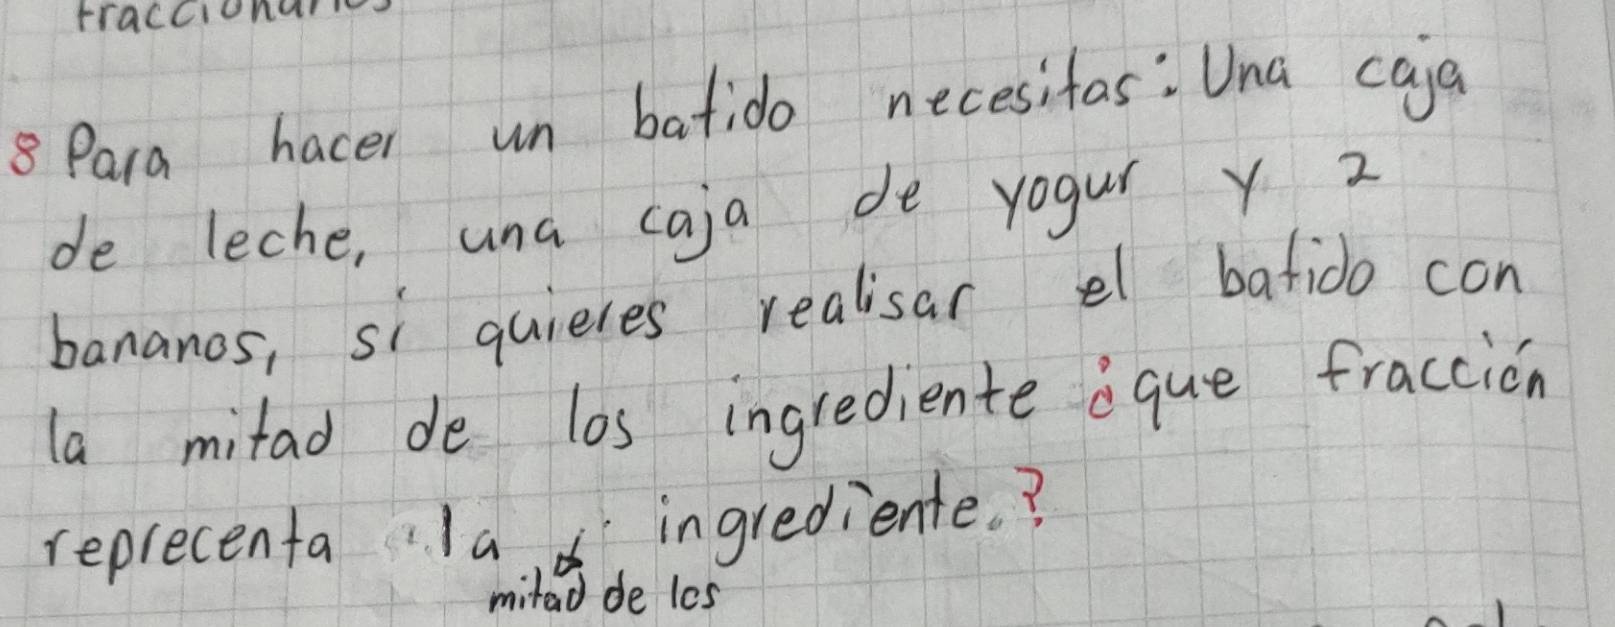 fraccionarios
8 Para hacer un batido necesitas: Una caja
de leche, una caja de yogur y 2
bananos, si quieres realisar el batido con
la mitad de los ingrediente ¿que fracción
reprecenta la ingrediente.?
mitad de los